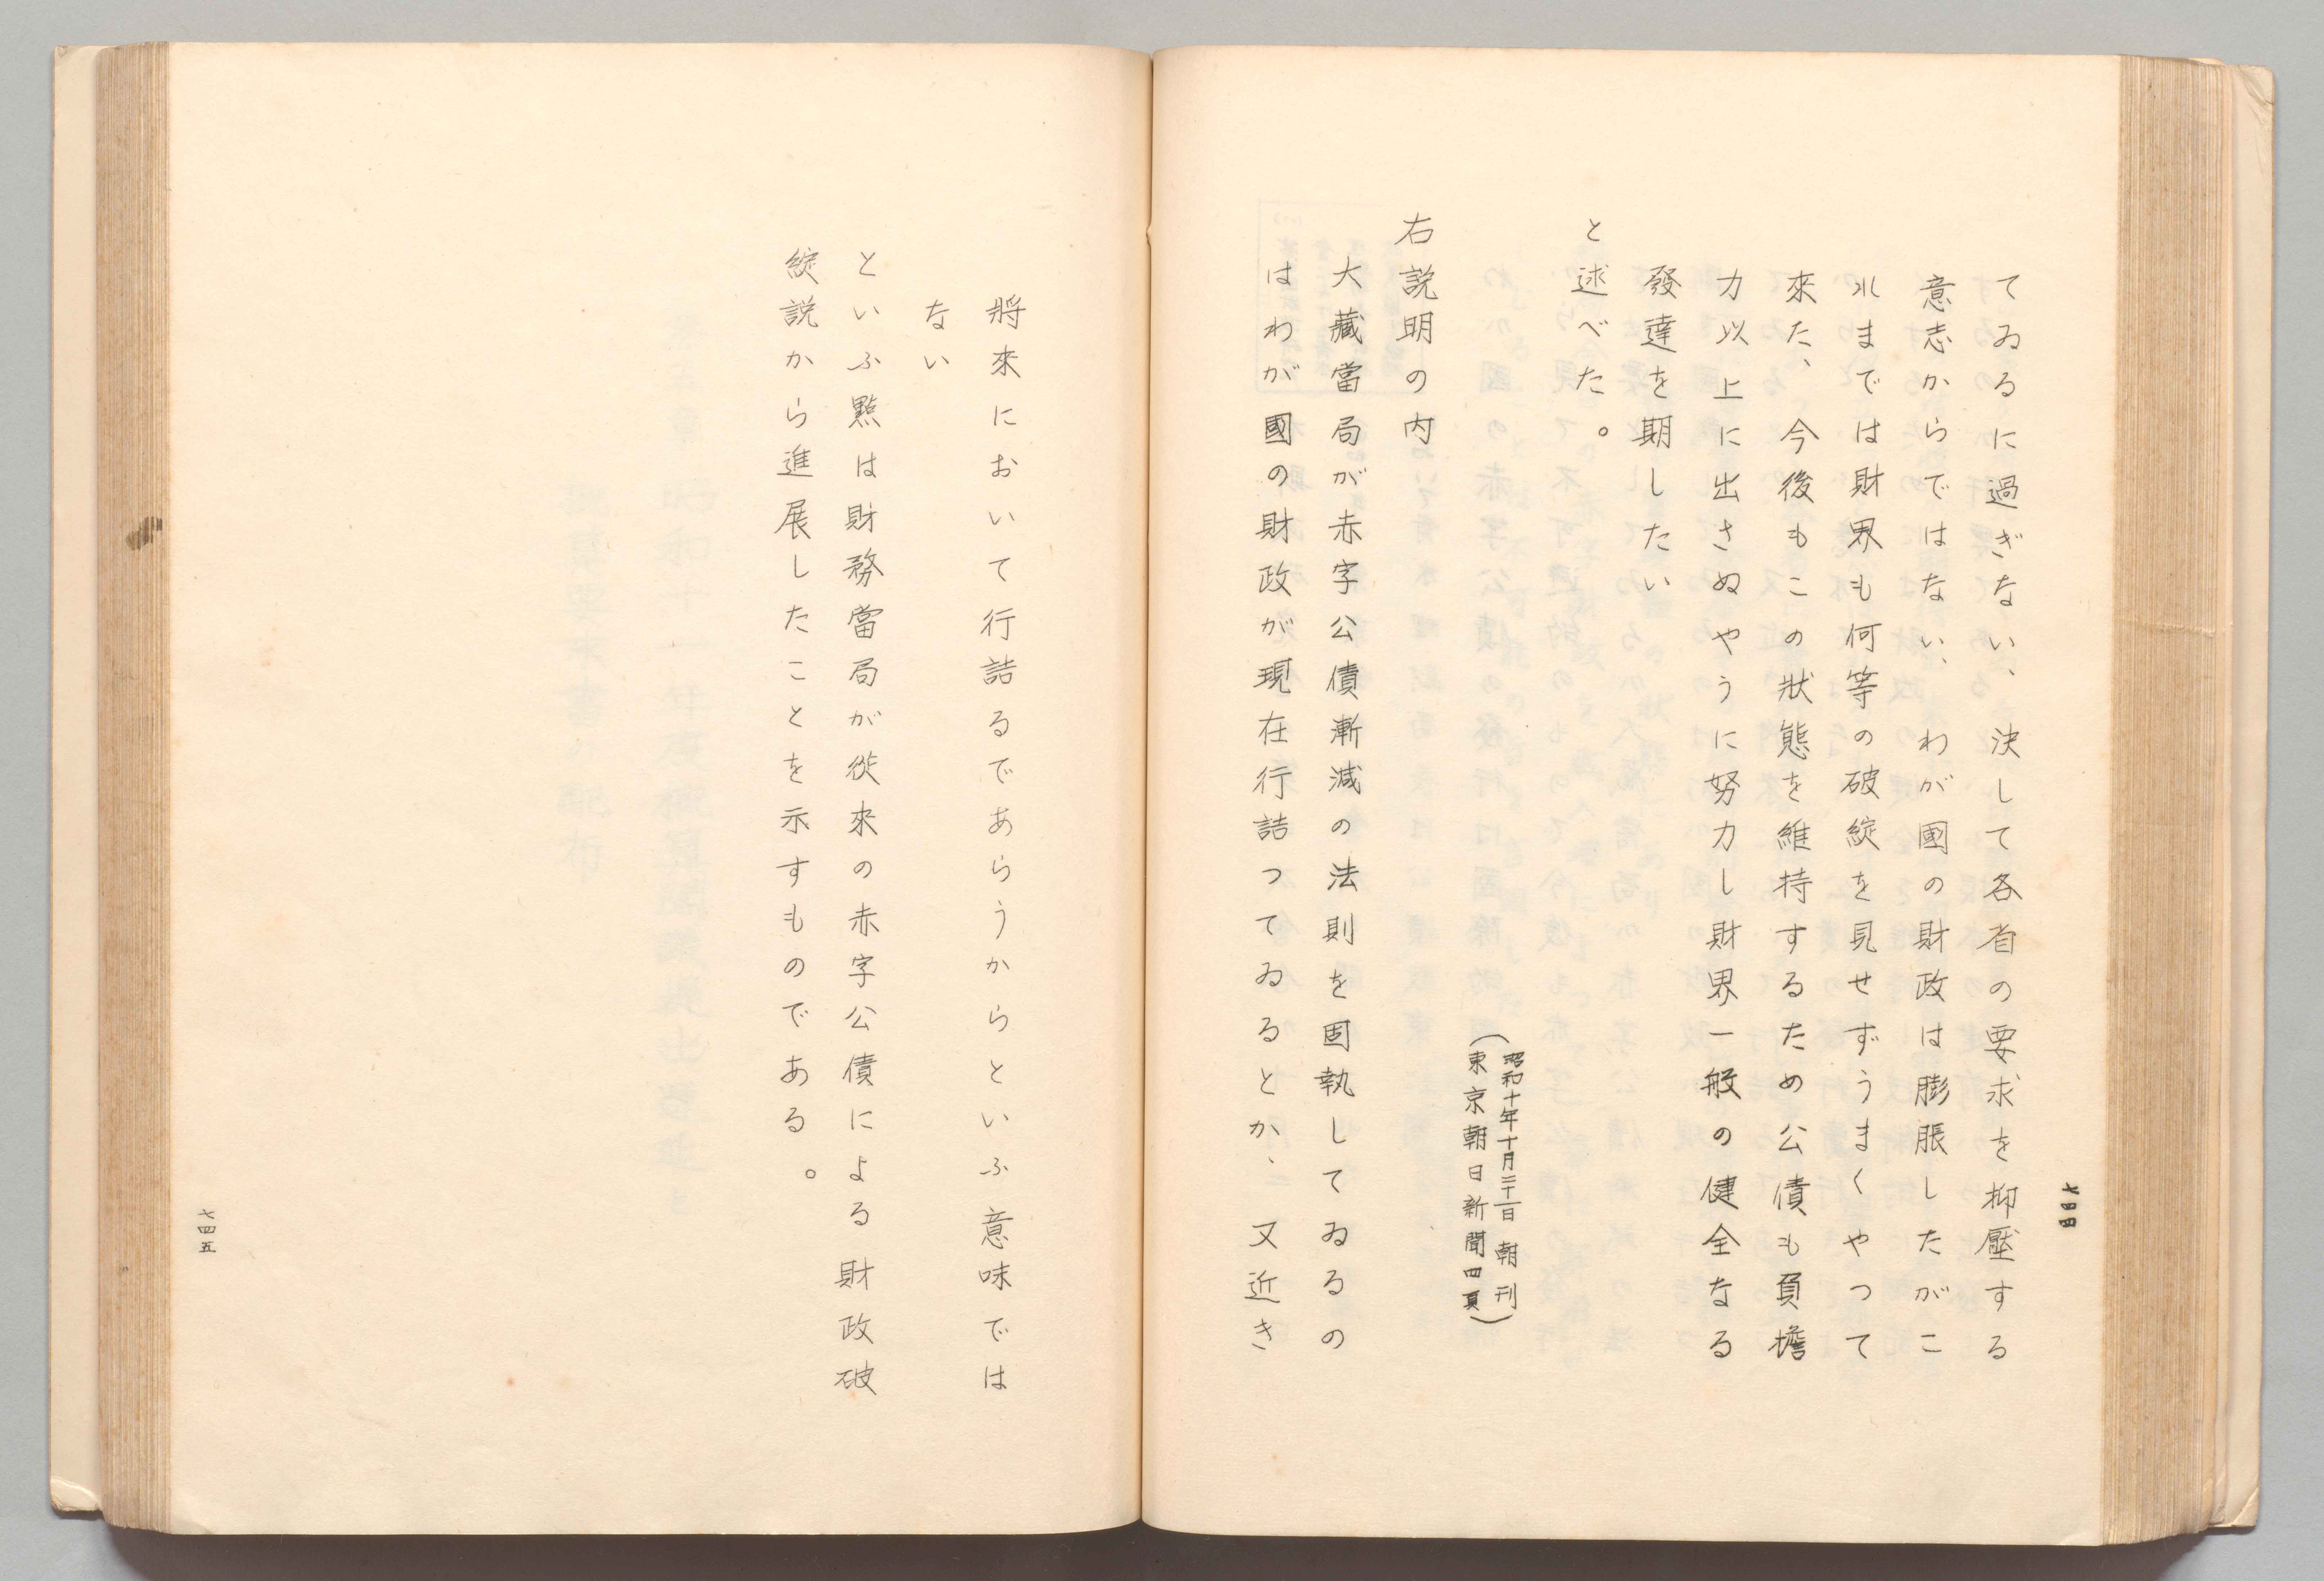 てゐるに過ぎない、決して各省の要求を抑壓する
意志からではない、わが國の財政は膨脹したがこ
れまでは財界も何等の破綻を見せずうまくやつて
來た、今後もこの狀態を維持するため公債も負擔
力以上に出さぬやうに努力し財界一般の健全なる
發達を期したい
と述べた。
(昭和十年十月三十一日朝刊
東京朝日新聞四頁)
右説明の内
大藏當局が赤字公債漸減の法則を固執してゐるの
はわが國の財政が現在行詰つてゐるとか、又近き
七四四
將來において行詰るであらうからといふ意味では
ない
といふ點は財務當局が從來の赤字公債による財政破
綻説から進展したことを示すものである。
七四五